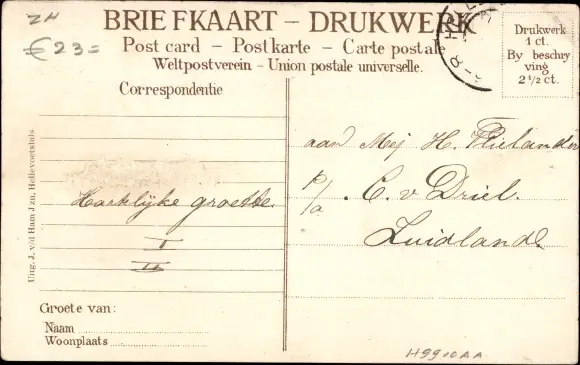 ZH
€ 23=
BRIEFKAART – DRUKWERK
Post card – Postkarte – Carte postale
Weltpostverein - Union postale universelle.
Drukwerk
1 ct.
By beschry
ving
2½ ct.
Correspondentie
aan Mej H. Vlielander
p/a C. v Driel.
Zuidland.
Hartelijke groette
I
II
Uitg. J. v/d Ham Jzn, Hellevoetsluis
Groete van:
Naam
Woonplaats
H9910AA